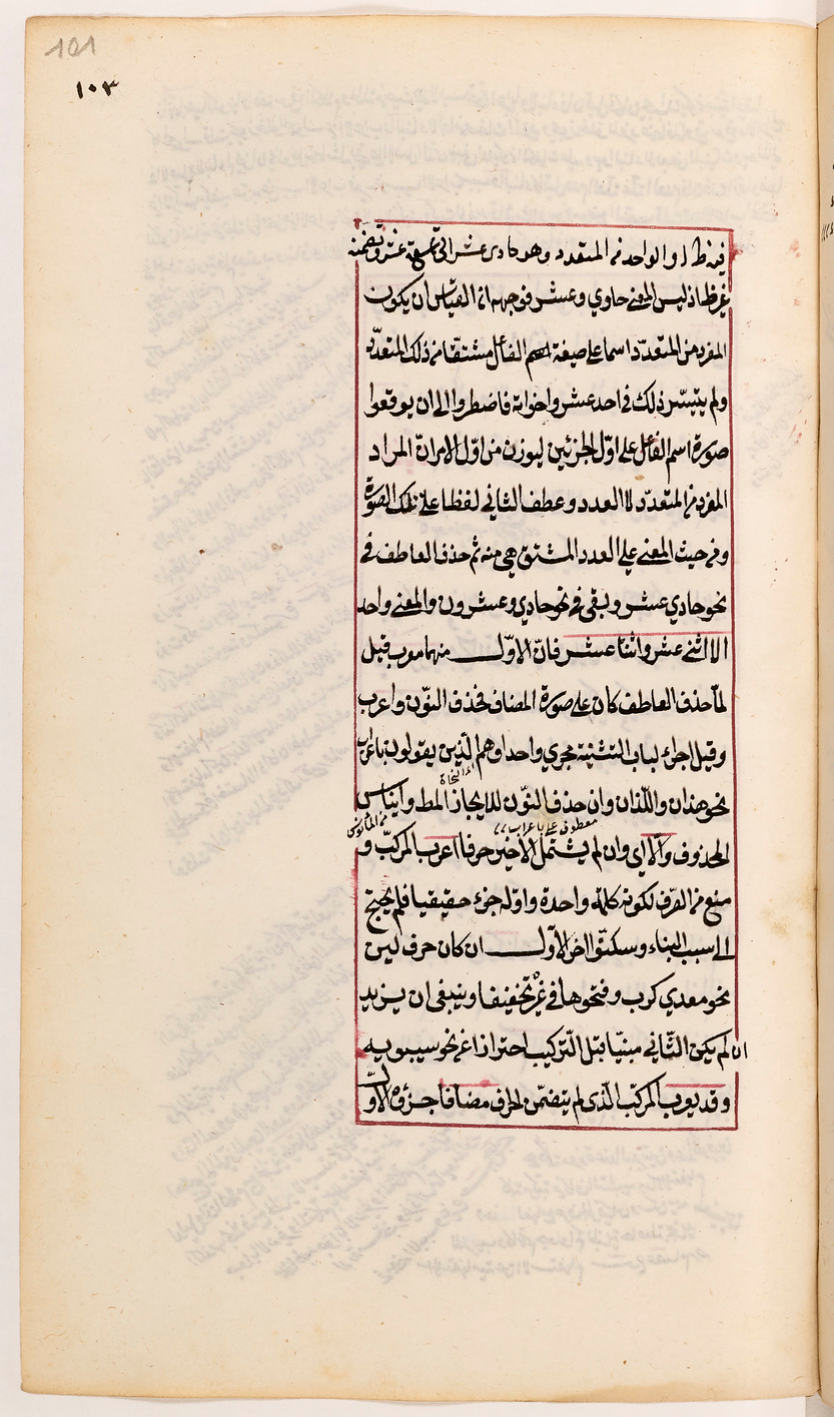 101
١٠٣
فيه ظ او الواحد من المتعدد وهو حادى عشر الى تسعة عشر وتضمنه
غير ظ اذ ليس المعنى حادي وعشر فوجهه ان القياس ان يكون
المفرد من المتعدّد اسما على صيغة اسم الفاعل مشتقا من ذلك المتعدّد
ولم يتيسّر ذلك في احد عشر واخواته فاضطروا الى ان يوقعوا
صورة اسم الفاعل على اوّل الجزئين ليوزن من اوّل الامر انّ المراد
المفرد من المتعدّد لا العدد وعطف الثاني لفظا على تلك الصورة
ومن حيث المعنى على العدد المشتق هي منه ثم حذف العاطف في
نحو حادي عشر وبقى في نحو حادي وعشرون والمعنى واحد
الا اثنى عشر واثنا عشر فانّ الاوّل منهما معرب قيل
لمّا حذف العاطف كان على صورة المضاف فحذف النّون واعرب
وقيل اجراء لباب التثنية مجرى واحدا وهم الّذين يقولون باعراب
اى النحاة
نحو هذان واللّذان وان حذف النّون للايجاز المط وايناس
معطوف على باعراب
المحذوف والّا اى وان لم يشتمل الاخير حرفا اعرب المركّب و
منع من الصّرف لكونه كلمة واحدة واوّله جزء حقيقيا فلم يحتج
الى سبب البناء وسكنوا اخر الاوّل ان كان حرف لين
نحو معدي كرب وفتحوها في غيره تخفيفا وينبغي ان يزيد
ان لم يكن الثّاني مبنيّا قبل التّركيب احترازا عن نحو سيبويه
وقد يعرب المركّب الّذى لم يتضمّن الحرف مضافا جزؤه الاوّل